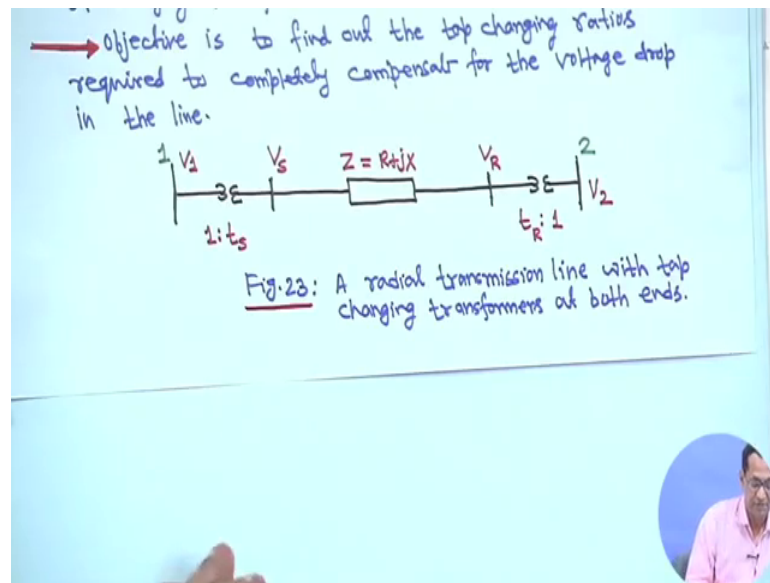 → Objective is to find out the tap changing ratios
required to completely compensate for the voltage drop
in the line.
1 V1 VS Z = R+jX VR 2
V2
1:tS tR:1
Fig.23: A radial transmission line with tap
changing transformers at both ends.